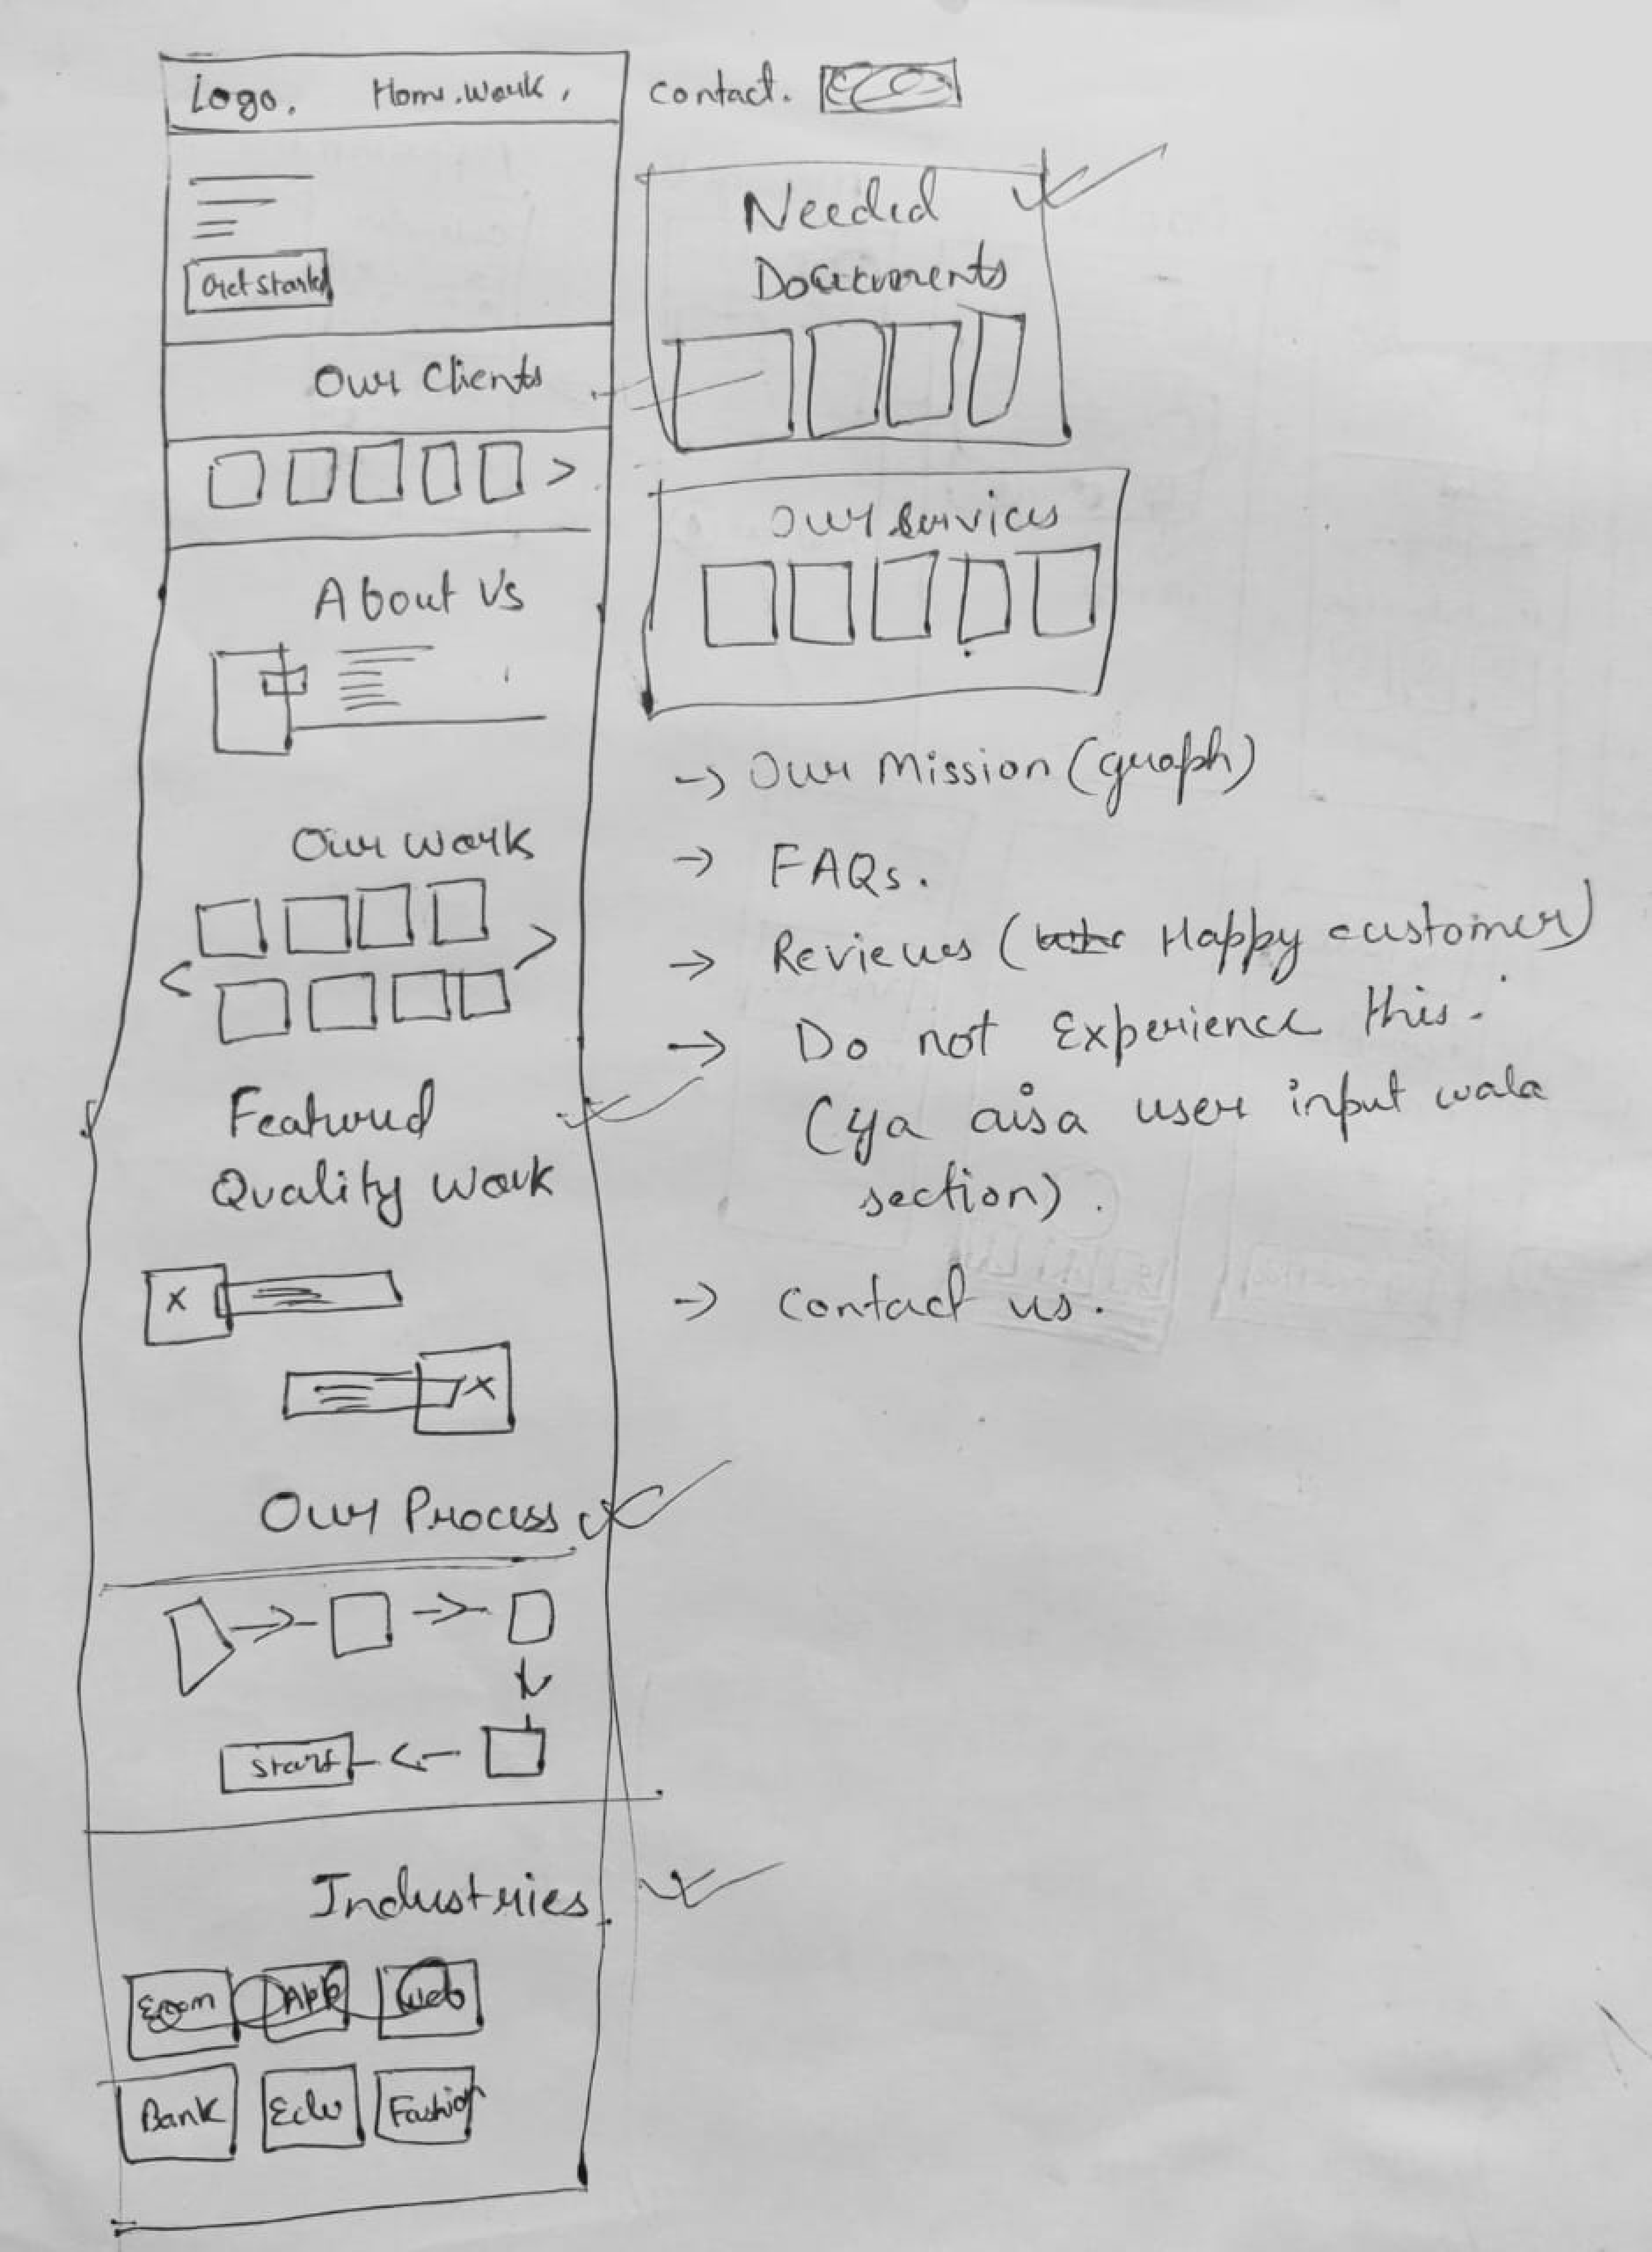 Logo. Home. Work, Contact.
Get Started
Our Clients
About Us
Our Work
Featured
Quality Work
x
x
Our Process
Start
Industries
Ecom App Web
Bank Edu Fashion
Needed
Documents
Our Services
-> Our Mission (graph)
-> FAQs.
-> Reviews ( Happy customer)
-> Do not Experience this.
(ya aisa user input wala
section).
-> Contact us.